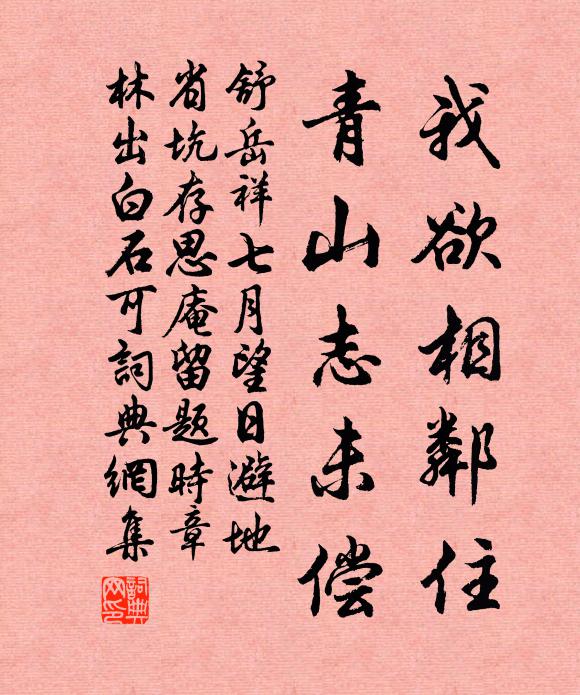 我欲相鄰住
青山志未偿
舒岳祥七月望日避地
省坑存思庵留题時章
林出白石可詞典網集
詞典网印